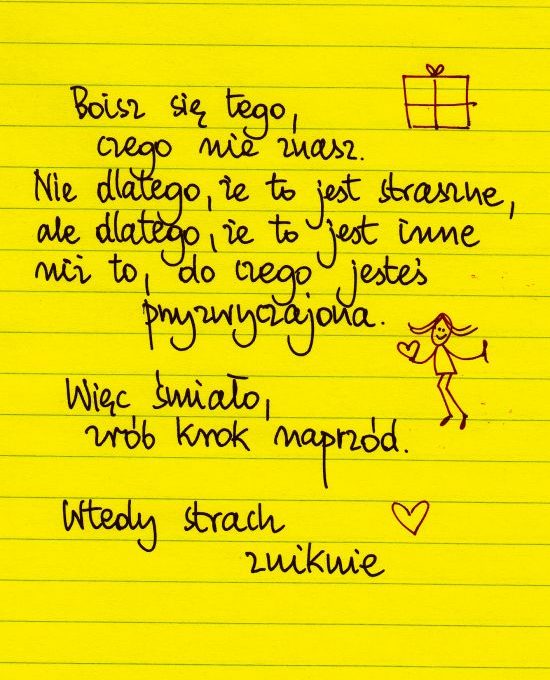 Boisz się tego,
czego nie znasz.
Nie dlatego, że to jest straszne,
ale dlatego, że to jest inne
niż to, do czego jesteś
przyzwyczajona.
Więc śmiało,
zrób krok naprzód.
Wtedy strach
zniknie